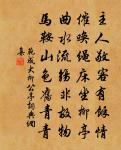 主人敬客有餘情
催喚繩床坐柳亭
曲水流觴非故物
馬鞍山色舊青青
范成大柳公亭詞典網
集